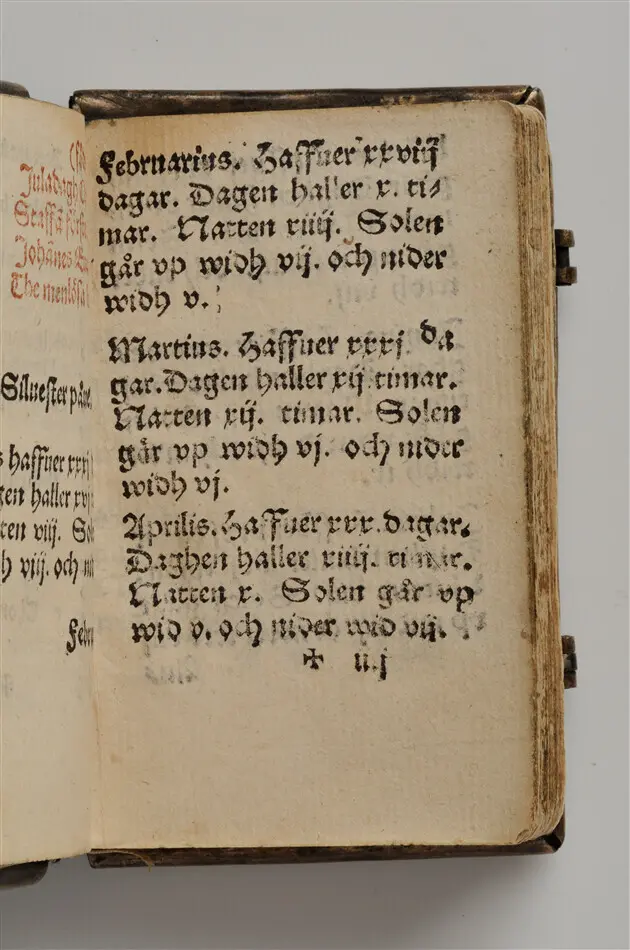 Juladagh
Staffã
Johãnes
The menlösa
Siluester
haffuer xxxj
haller
viij.
viij. och
Februarius. Haffuer xxviij
dagar. Dagen haller x. ti⸗
mar. Natten xiiij. Solen
går vp widh vij. och nider
widh v.
Martius. Haffuer xxxj da
gar. Dagen haller xij timar.
Natten xij. timar. Solen
går vp widh vj. och nider
widh vj.
Aprilis. Haffuer xxx. dagar.
Daghen haller xiiij. timar.
Natten x. Solen går vp
wid v. och nider wid vij.
✠ ii.j